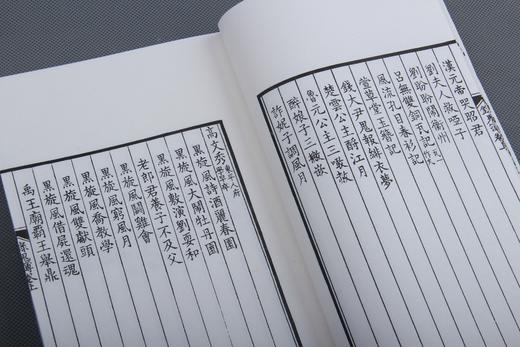 漢元帝哭昭君
劉夫人救啞子
劉盼盼鬧衡州
呂無雙銅瓦記
風流孔目春衫記
萱草堂玉簪記
錢大尹鬼報緋衣夢
楚雲公主酹江月
魯元公主三噉赦
醉娘子三撇嵌
許妮子調風月
高文秀
黑旋風詩酒麗春園
黑旋風大鬧牡丹園
黑旋風敷演劉耍和
老郎君養子不及父
黑旋風鬭雞會
黑旋風窮風月
黑旋風喬教學
黑旋風雙獻頭
黑旋風借屍還魂
禹王廟霸王舉鼎